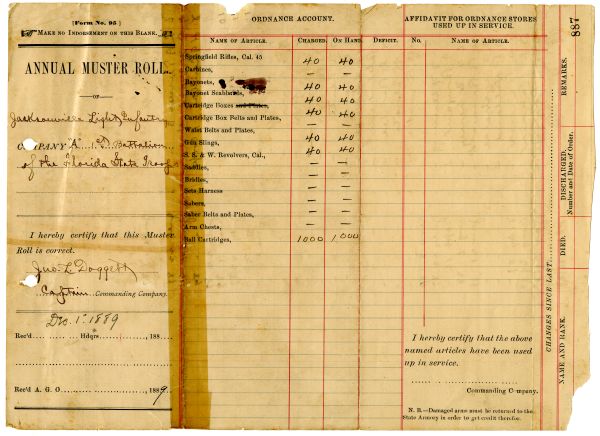 [Form No. 95]
MAKE NO INDORSEMENT ON THIS BLANK.
ANNUAL MUSTER ROLL
—OF—
Jacksonville Light Infantry
COMPANY "A" 1st Battalion
of the Florida State Troops
I hereby certify that this Muster
Roll is correct.
Jno. L. Doggett
Captain Commanding Company.
Dec. 1st 1889
Rec'd Hdqrs. 188
Rec'd A. G. O. 1889.
ORDNANCE ACCOUNT.
NAME OF ARTICLE. CHARGED. ON HAND. DEFICIT.
Springfield Rifles, Cal. 45 40 40
Carbines, — —
Bayonets,
Bayonet Scabbards, 40 40
Cartridge Boxes and Plates, 40 40
Cartridge Box Belts and Plates, 40 40
Waist Belts and Plates, — —
Gun Slings, 40 40
S. S. & W. Revolvers, Cal., 40 40
Saddles, — —
Bridles, — —
Sets Harness — —
Sabers, — —
Saber Belts and Plates, — —
Arm Chests, — —
Ball Cartridges, 1000 1000
AFFIDAVIT FOR ORDNANCE STORES
USED UP IN SERVICE.
No. NAME OF ARTICLE.
I hereby certify that the above
named articles have been used
up in service.
Commanding Company.
N. B.—Damaged arms must be returned to the
State Armory in order to get credit therefor.
CHANGES SINCE LAST
NAME AND RANK. DIED. DISCHARGED. REMARKS.
Number and Date of Order.
887